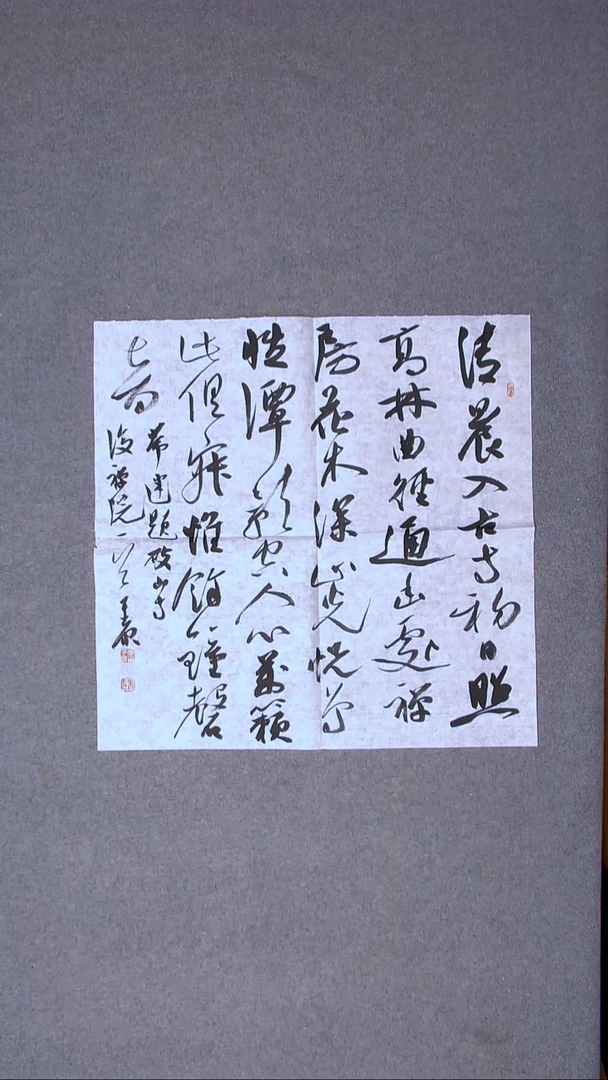 清晨入古寺初日照
高林曲徑通幽處禪
房花木深山光悦鳥
性潭影空人心萬籟
此俱寂惟餘鐘磬
音
常建題破山寺
後禪院一首